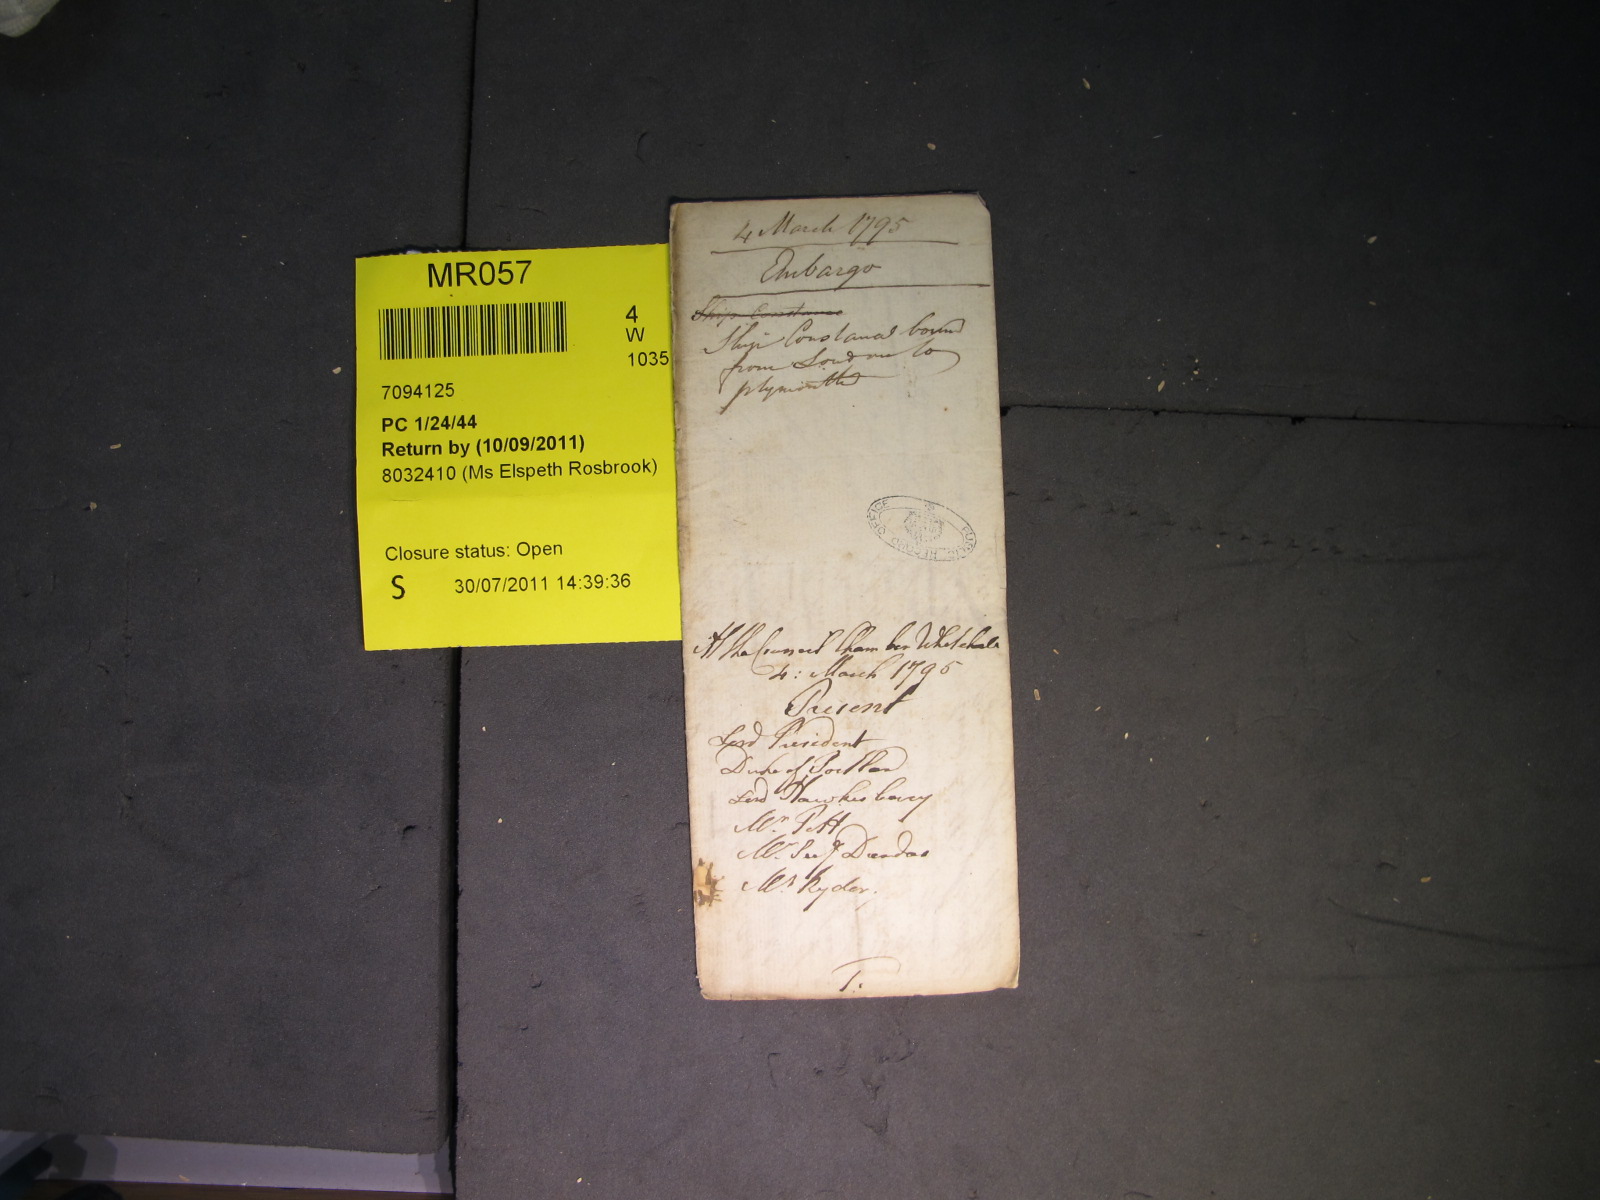 MR057
4
W
1035
7094125
PC 1/24/44
Return by (10/09/2011)
8032410 (Ms Elspeth Rosbrook)
Closure status: Open
S 30/07/2011 14:39:36
4 March 1795
Embargo
Ship Constance
Ship Constance bound
from London to
plymouth
PUBLIC RECORD OFFICE
At the Council Chamber Whitehall
4: March 1795
Present
Lord President
Duke of Portland
Lord Hawkesbury
Mr. Pitt
Mr. Secy Dundas
Mr Ryder.
T.